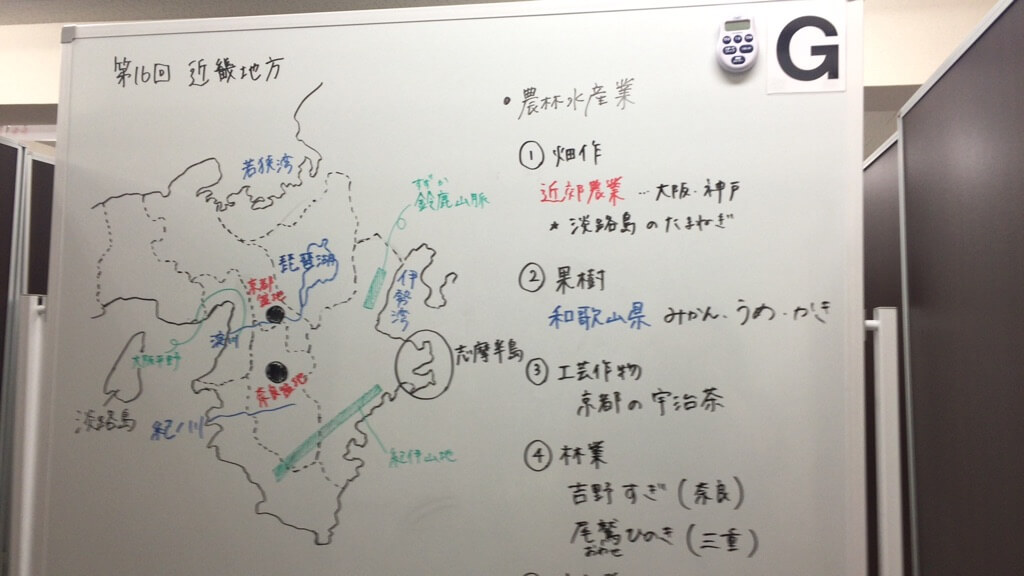 G
第16回 近畿地方
若狭湾
すずか
鈴鹿山脈
琵琶湖
京都
盆地
伊勢湾
淀川
大阪平野
志摩半島
奈良盆地
淡路島
紀ノ川
紀伊山地
・農林水産業
① 畑作
近郊農業…大阪・神戸
* 淡路島のたまねぎ
② 果樹
和歌山県 みかん・うめ・かき
③ 工芸作物
京都の宇治茶
④ 林業
吉野すぎ(奈良)
尾鷲ひのき(三重)
おわせ